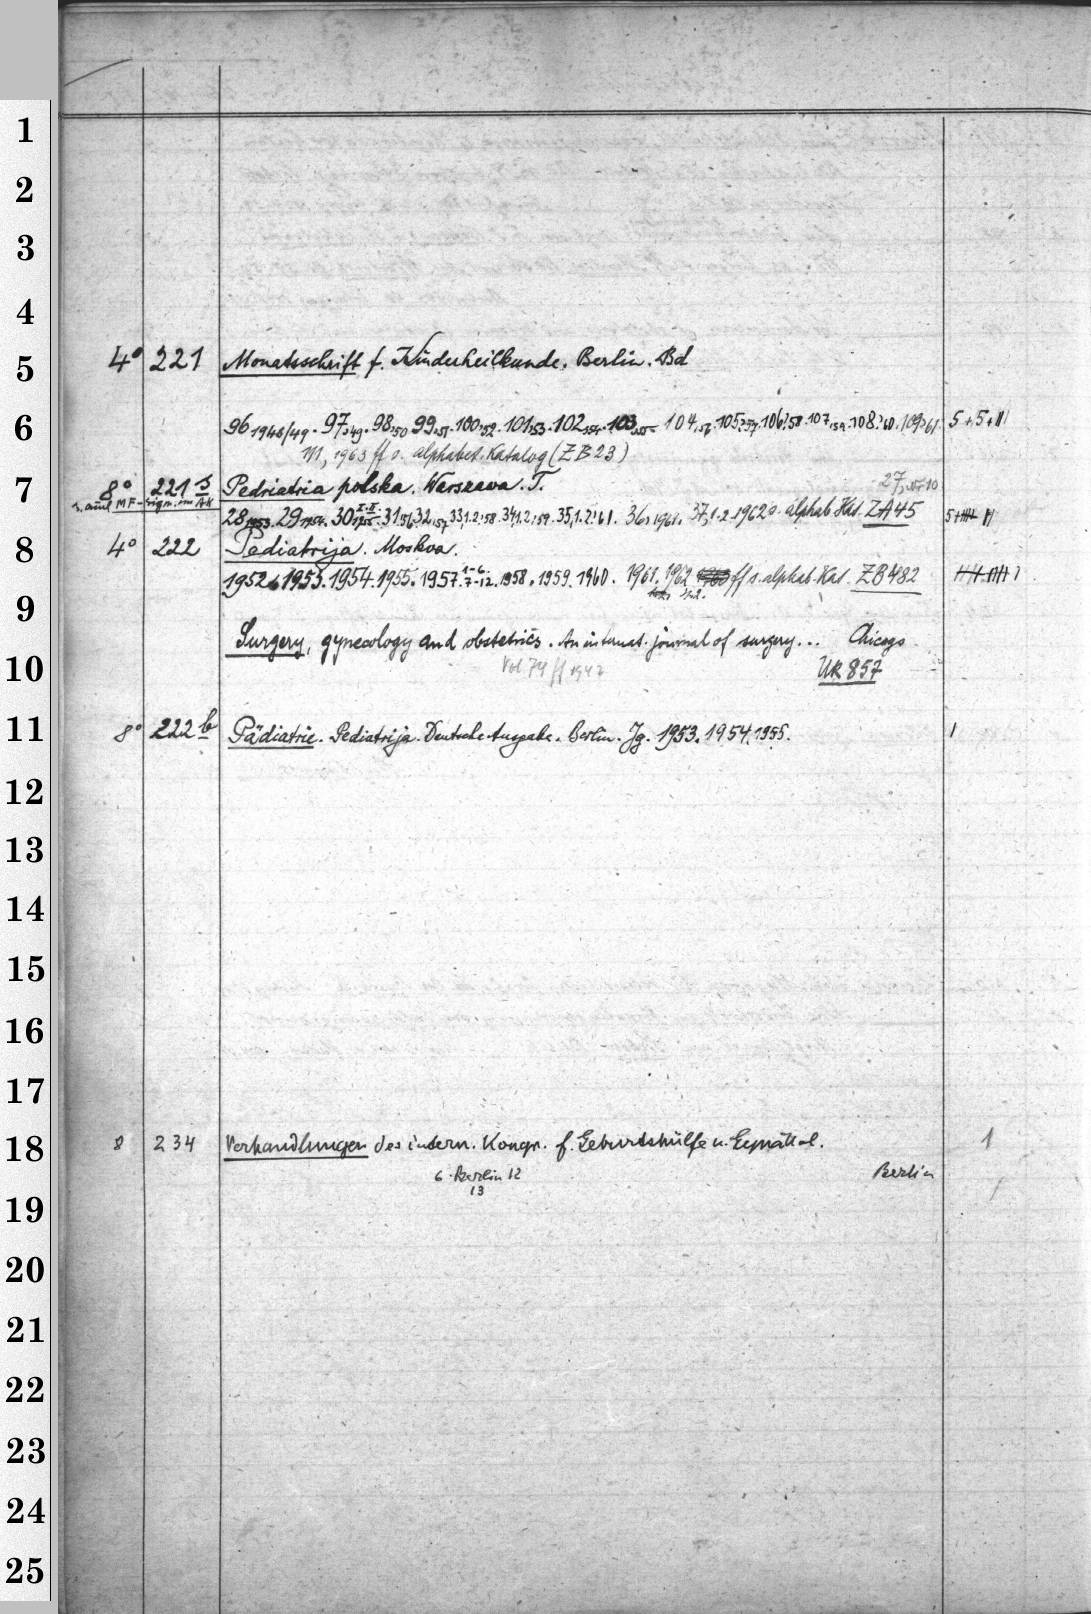 1
2
3
4
4° 221 Monatsschrift f. Kinderheilkunde. Berlin. Bd
5
96 1948/49. 97,49. 98,50 99,51. 100,52. 101,53. 102,54. 103,55 104,56. 105,57. 106,58. 107,59. 108,60. 109,61 5+5+
6
111, 1963 ff s. alphabet. Katalog (ZB23)
27, Nr 10
7
8° 221 s Pedriatria polska. Warszawa. T.
s. auch MF-Sign. im AK
28,1953. 29,1954. 30 I-II 1955. 31,56. 32,57. 33,1.2,58. 34,1.2,59. 35,1.2,61. 36,1961. 37,1-2.1962 s. alphab. Kat. ZA45 5+
8
4° 222 Pediatrija. Moskva.
1952. 1953. 1954. 1955. 1957. 1-6. 7-12. 1958. 1959. 1960. 1961. 1962 ff s. alphab. Kat. ZB482
9
Surgery, gynecology and obstetrics. An internat. journal of surgery... Chicago
10
Vol 74 ff 1942 UK 857
11
8° 222 b Pädiatrie. Pediatrija. Deutsche Ausgabe. Berlin. Jg. 1953. 1954. 1955. 1
12
13
14
15
16
17
18
8 234 Verhandlungen des intern. Kongr. f. Geburtshülfe u. Gynäkol. 1
6. Berlin 12 Berlin
13
19
20
21
22
23
24
25